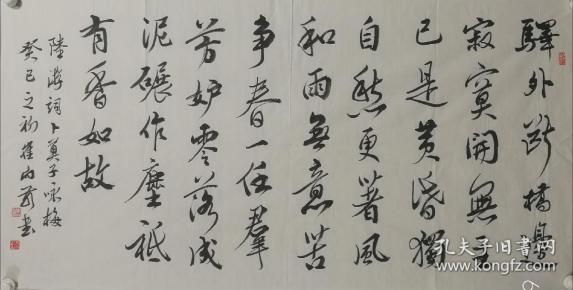 驛外斷橋邊
寂寞開無主
已是黃昏獨
自愁更著風
和雨無意苦
争春一任羣
芳妒零落成
泥碾作塵祗
有香如故
陸游詞卜算子詠梅
癸巳之初崔
孔夫子旧書网
www.kongfz.com